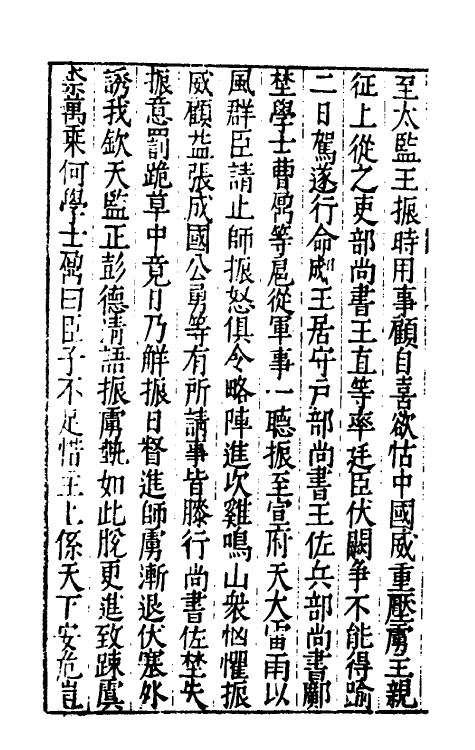 至太監王振時用事顧自喜欲怙中國威重壓虜王親
征上從之吏部尚書王直等率廷臣伏闕争不能得踰
二日駕遂行命郕王居守戶部尚書王佐兵部尚書鄺
埜學士曹鼐等扈從軍事一聽振至宣府天大雷雨以
風群臣請止師振怒俱令略陣進次雞鳴山衆恟懼振
威顧益張成國公勇等有所請事皆膝行尚書佐埜失
振意罰跪草中竟日乃觧振日督進師虜漸退伏塞外
誘我欽天監正彭德清語振虜埶如此脫更進致踈虞
柰萬乘何學士鼐曰臣子不足惜主上係天下安危豈